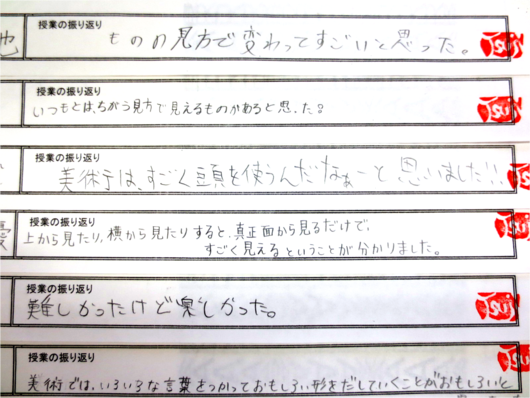 授業の振り返り
ものの見方で変わってすごいと思った。
授業の振り返り
いつもとは、ちがう見方で見えるものがあると思った。
授業の振り返り
美術は、すごく頭を使うんだなぁーと思いました!!
授業の振り返り
上から見たり、横から見たりすると、真正面から見るだけで、
すごく見えるということが分かりました。
授業の振り返り
難しかったけど楽しかった。
授業の振り返り
美術では、いろいろな言葉をつかっておもしろい形をだしていくことがおもしろいと